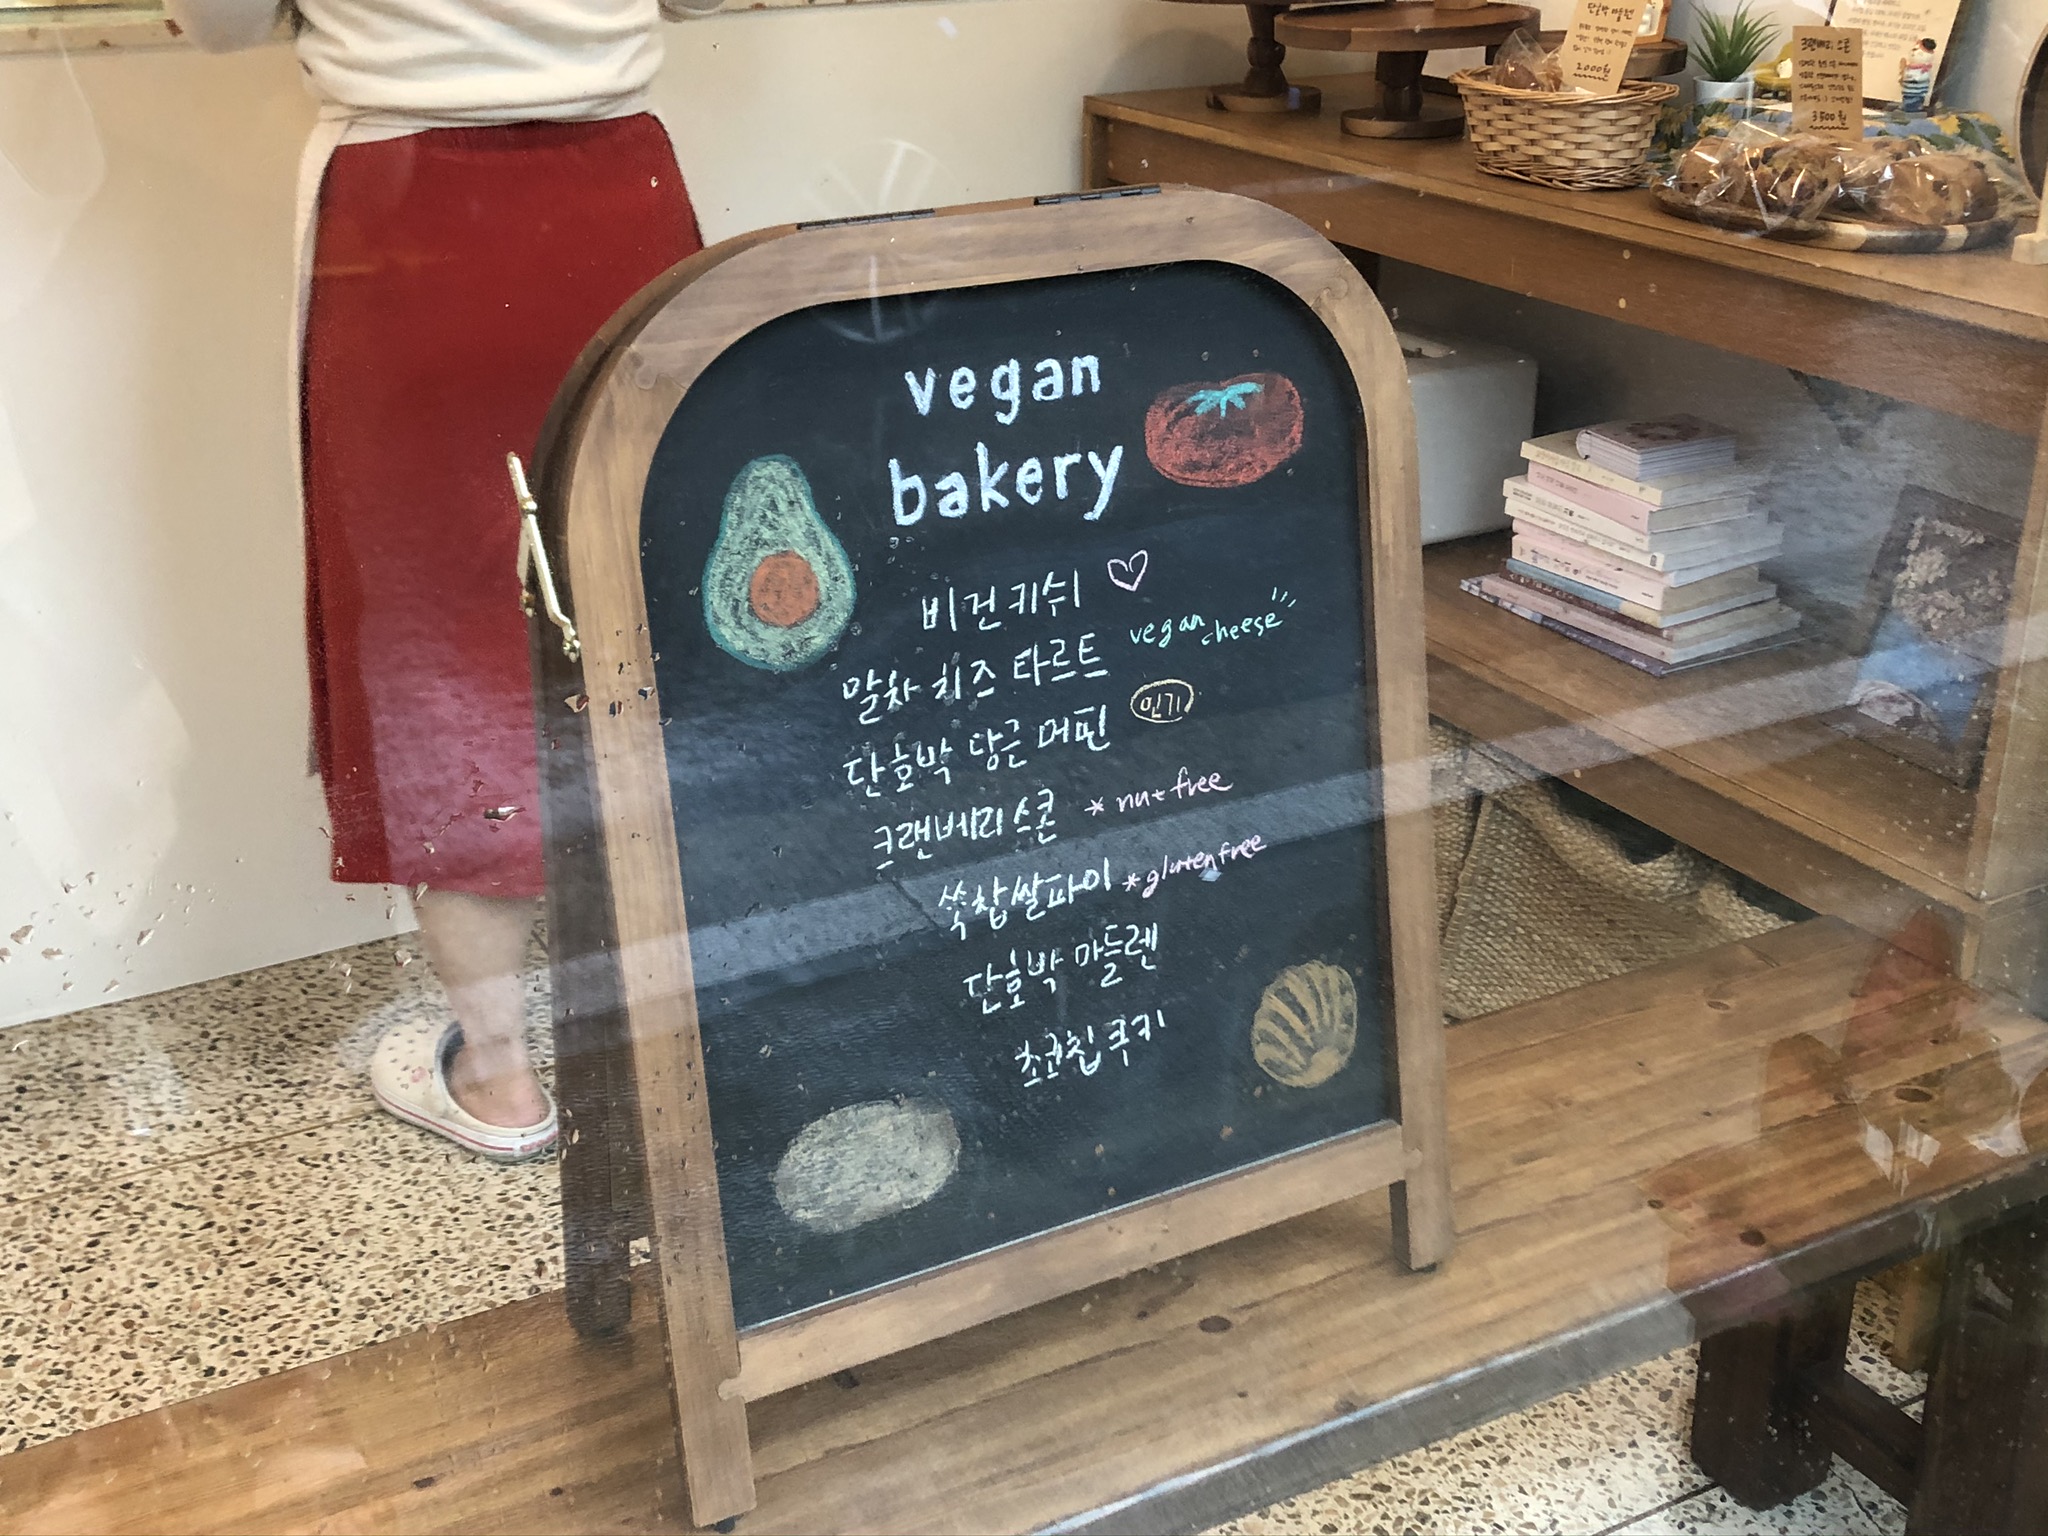 vegan
bakery
비건 키쉬
말차 치즈 타르트 vegan cheese
단호박 당근 머핀 인기
크랜베리 스콘 * nut free
쑥찹쌀파이 * gluten free
단호박 마들렌
초코칩 쿠키
단호박 마들렌
2000원
크랜베리 스콘
3500원